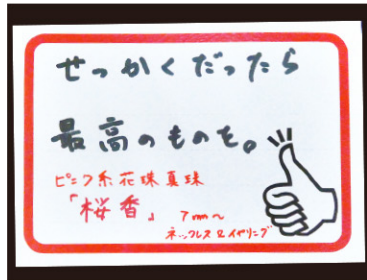 せっかくだったら
最高のものを。
ピンク系花珠真珠
「桜香」 7mm～
ネックレス&イヤリング